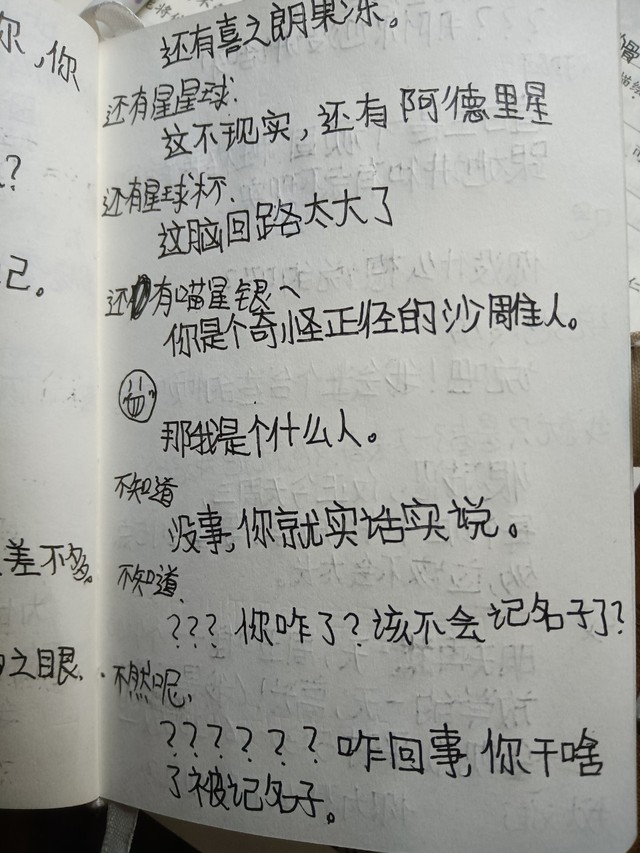 还有喜之朗果冻。
还有星星球.
这不现实,还有阿德里星
还有星球杯.
这脑回路太大了
还有喵星银~
你是个奇怪正经的沙雕人。
那我是个什么人。
不知道
没事,你就实话实说。
不知道.
??? 你咋了?该不会记名字了?
不然呢,
?????? 咋回事,你干啥
了被记名字。
尔,你
?
己。
差不多。
之目艮.